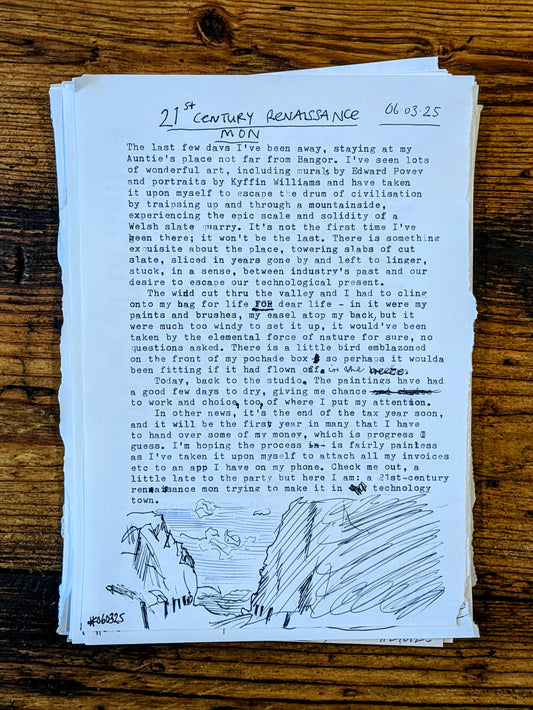 21st CENTURY RENAISSANCE
06.03.25
MON
The last few days I've been away, staying at my
Auntie's place not far from Bangor. I've seen lots
of wonderful art, including murals by Edward Povey
and portraits by Kyffin Williams and have taken
it upon myself to escape the drum of civilisation
by traipsing up and through a mountainside,
experiencing the epic scale and solidity of a
Welsh slate quarry. It's not the first time I've
been there; it won't be the last. There is something
exquisite about the place, towering slabs of cut
slate, sliced in years gone by and left to linger,
stuck, in a sense, between industry's past and our
desire to escape our technological present.
The wind cut thru the valley and I had to cling
onto my bag for life FOR dear life - in it were my
paints and brushes, my easel atop my back, but it
were much too windy to set it up, it would've been
taken by the elemental force of nature for sure, no
questions asked. There is a little bird emblazoned
on the front of my pochade box so perhaps it woulda
been fitting if it had flown off in the breeze.
Today, back to the studio. The paintings have had
a good few days to dry, giving me chance
to work and choice, too, of where I put my attention.
In other news, it's the end of the tax year soon,
and it will be the first year in many that I have
to hand over some of my money, which is progress I
guess. I'm hoping the process is fairly painless
as I've taken it upon myself to attach all my invoices
etc to an app I have on my phone. Check me out, a
little late to the party but here I am: a 21st-century
renaissance mon trying to make it in technology
town.
#060325